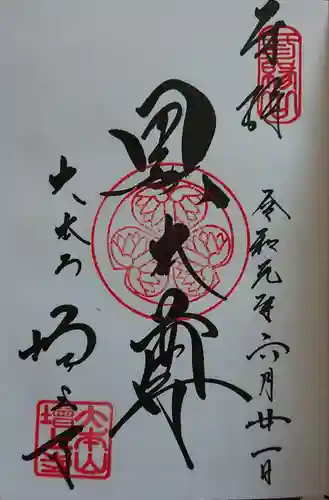 奉拝
令和元年六月廿一日
黒本尊
大本山
増上寺
大本山
増上寺